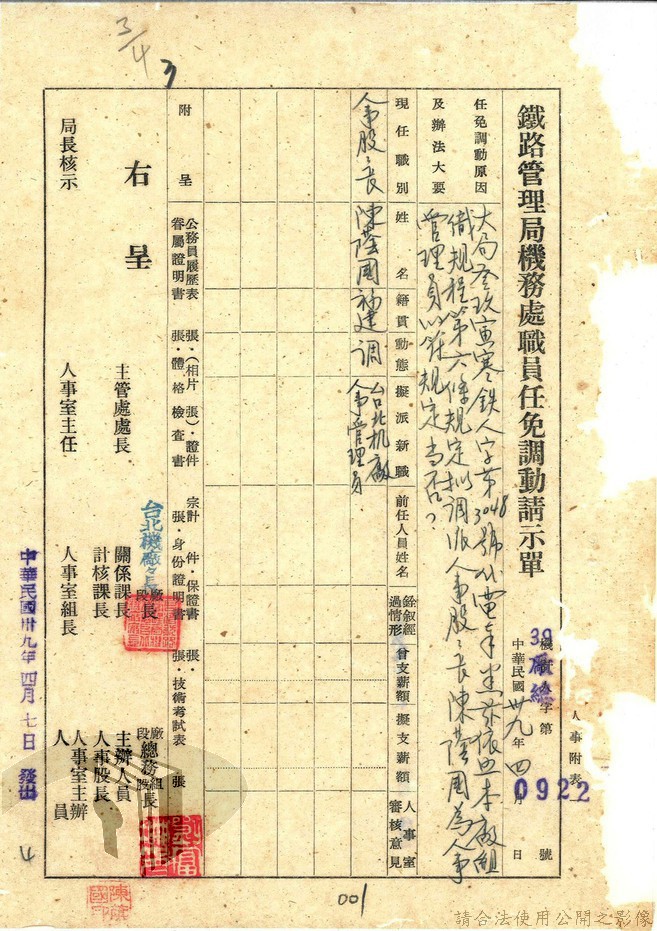 3/4
人事附表
鐵路管理局機務處職員任免調動請示單
機 人字第 號
39
廠總
0922
中華民國卅九年四月 日
任免調動原因
及辦法大要
大局叁玖寅寒鉄人字第3048號
組
織規程第六條規定擬調派人事股長陳蔭國為人事
管理員以符規定當否?
現任職別
姓 名
籍貫
動態
擬派新職
前任人員姓名
銓叙經過情形
曾支薪額
擬支薪額
人事室審核意見
人事股長
陳蔭國
福建
調
台北机廠
人事管理員
附 呈
公務員履歷表 張·(相片 張)·證件 宗計 件·保證書 張·
眷屬證明書 張·體格檢查書 張·身份證明書 張·技術考試表 張
右 呈
台北機廠廠長
廠段長
廠段總務組股長
主管處處長
關係課長
主辦人員
計核課長
人事股長
局長核示
人事室主任
人事室組長
人事室主辦人員
中華民國卅九年四月七日 發出
001
請合法使用公開之影像